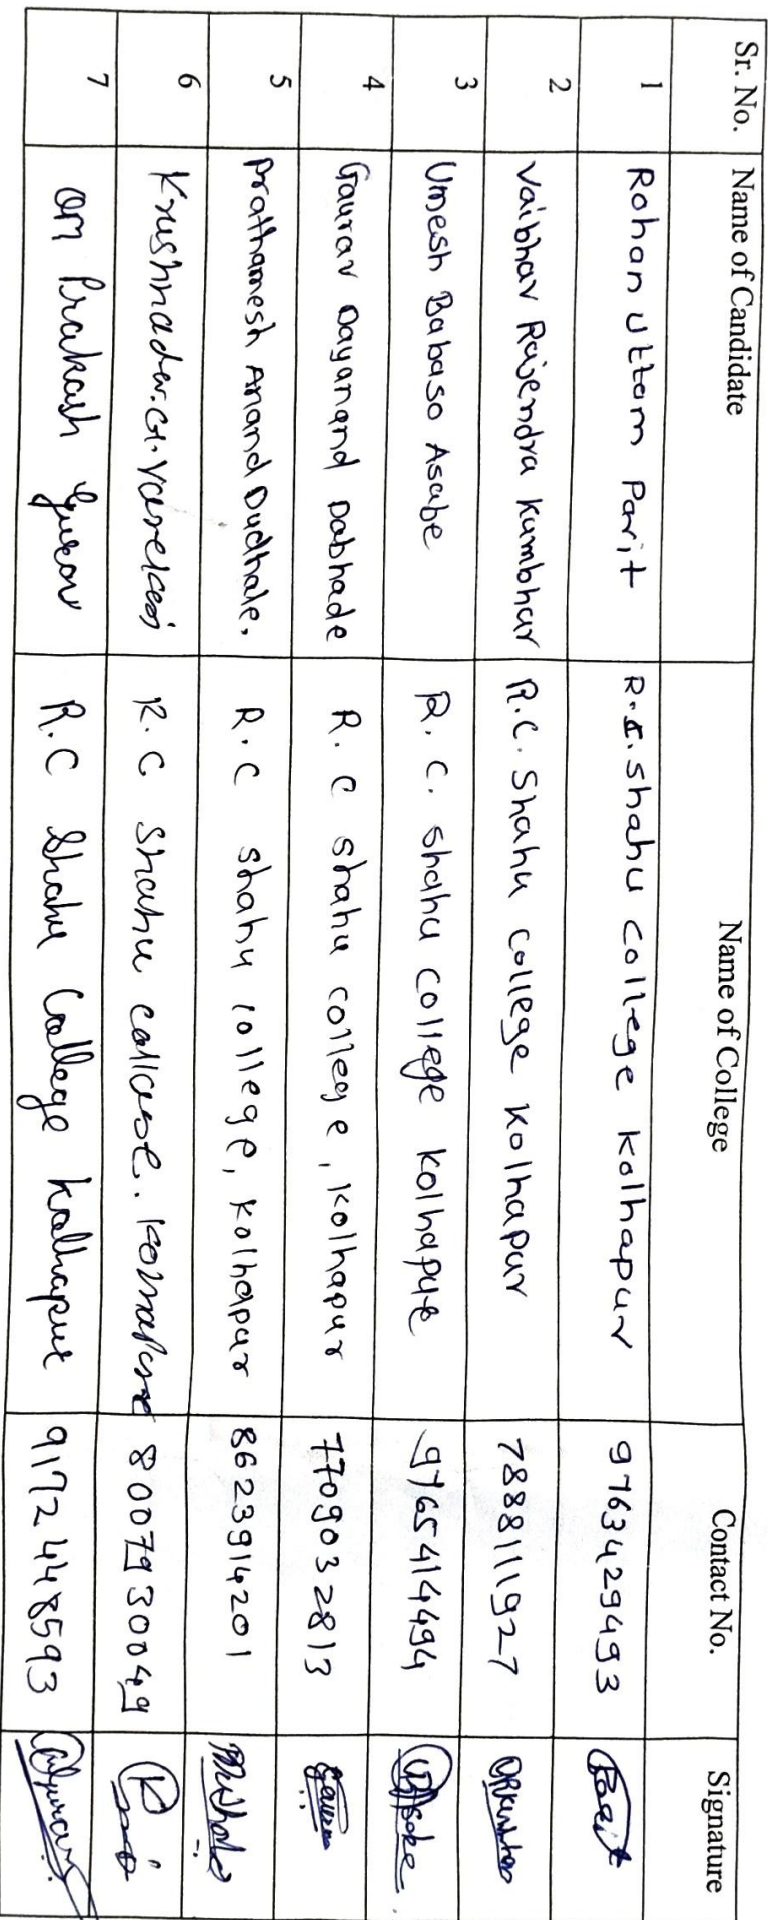 Sr. No. Name of Candidate Name of College Contact No. Signature
1 Rohan Uttam Parit R.C. Shahu College Kolhapur 9763429493 Parit
2 Vaibhav Rajendra Kumbhar R.C. Shahu College Kolhapur 7888111927
3 Umesh Babaso Asabe R. C. Shahu College Kolhapur 9765414494
4 Gaurav Dayanand Dabhade R. C Shahu College, Kolhapur 7709032813
5 Prathamesh Anand Dudhale. R.C Shahu College, Kolhapur 8623914201
6 R.C Shahu 8007930049
7 Om Prakash Gurav R.C Shahu College Kolhapur 9172448593